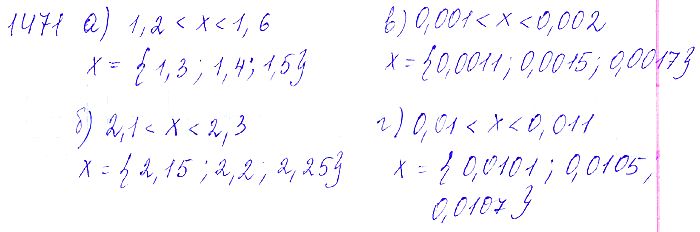 1471 а) 1,2 < x < 1,6
x = {1,3; 1,4; 1,5}
б) 2,1 < x < 2,3
x = {2,15; 2,2; 2,25}
в) 0,001 < x < 0,002
x = {0,0011; 0,0015; 0,0017}
г) 0,01 < x < 0,011
x = {0,0101; 0,0105,
0,0107}